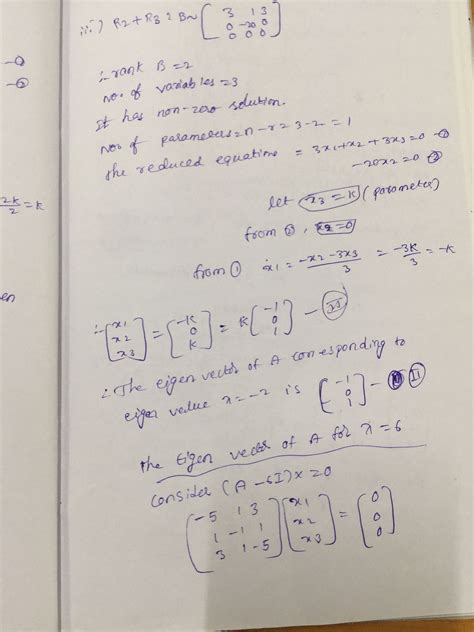 iii) R2 + R3 : B ~ (3 1 3
0 -20 0
0 0 0)
∴ rank B = 2
No. of variables = 3
It has non-zero solution.
No. of parameters = n - r = 3 - 2 = 1
The reduced equations = 3x1 + x2 + 3x3 = 0 - ①
-20x2 = 0 - ②
let x3 = k (parameter)
from ②, x2 = 0
from ① x1 = -x2 - 3x3 / 3 = -3k / 3 = -k
∴ (x1 x2 x3) = (-k 0 k) = k (-1 0 1) -
∴ The eigen vector of A corresponding to
eigen value λ = -2 is (-1 0 1) - II
The Eigen vector of A for λ = 6
Consider (A - 6I) x = 0
(-5 1 3
1 -1 1
3 1 -5) (x1 x2 x3) = (0 0 0)
- ①
- ②
2k / 2 = k
en